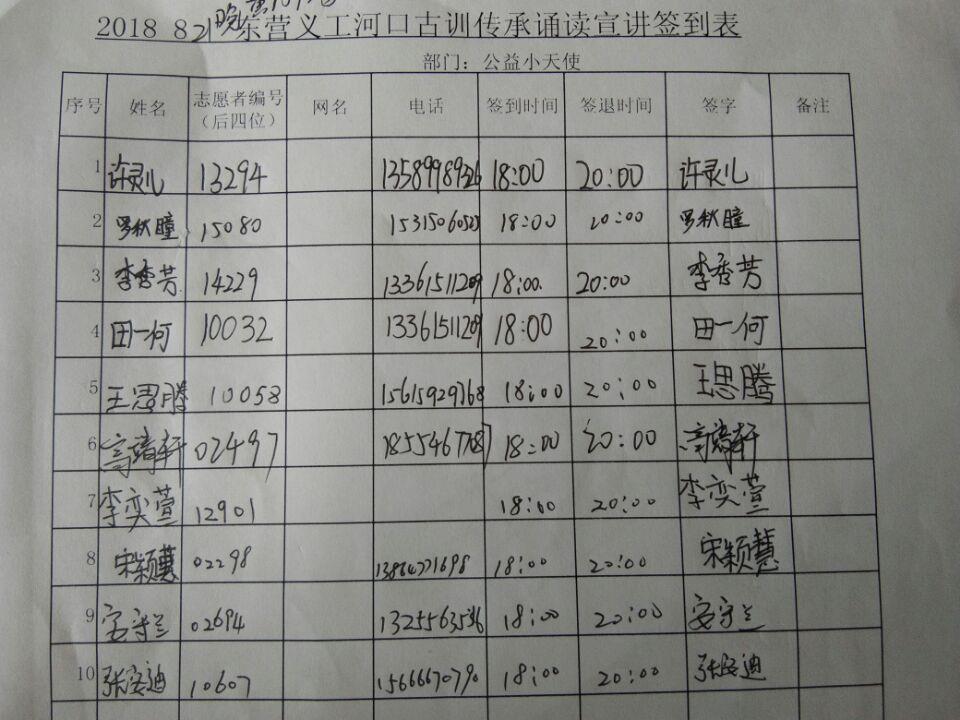 2018 8 21晚 东营义工河口古训传承诵读宣讲签到表
部门：公益小天使
序号 姓名 志愿者编号（后四位） 网名 电话 签到时间 签退时间 签字 备注
1 许灵儿 13294 13589989326 18:00 20:00 许灵儿
2 罗秋瞳 15080 18:00 20:00 罗秋瞳
3 李秀芳 14229 13361511209 18:00 20:00 李秀芳
4 田一何 10032 13361511209 18:00 20:00 田一何
5 王思腾 10058 15615929768 18:00 20:00 王思腾
6 高靖轩 02497 18554677687 18:00 20:00 高靖轩
7 李奕萱 12901 18:00 20:00 李奕萱
8 宋颖慧 02298 18:00 20:00 宋颖慧
9 安守兰 02694 18:00 20:00 安守兰
10 张安迪 10607 15666670790 18:00 20:00 张安迪